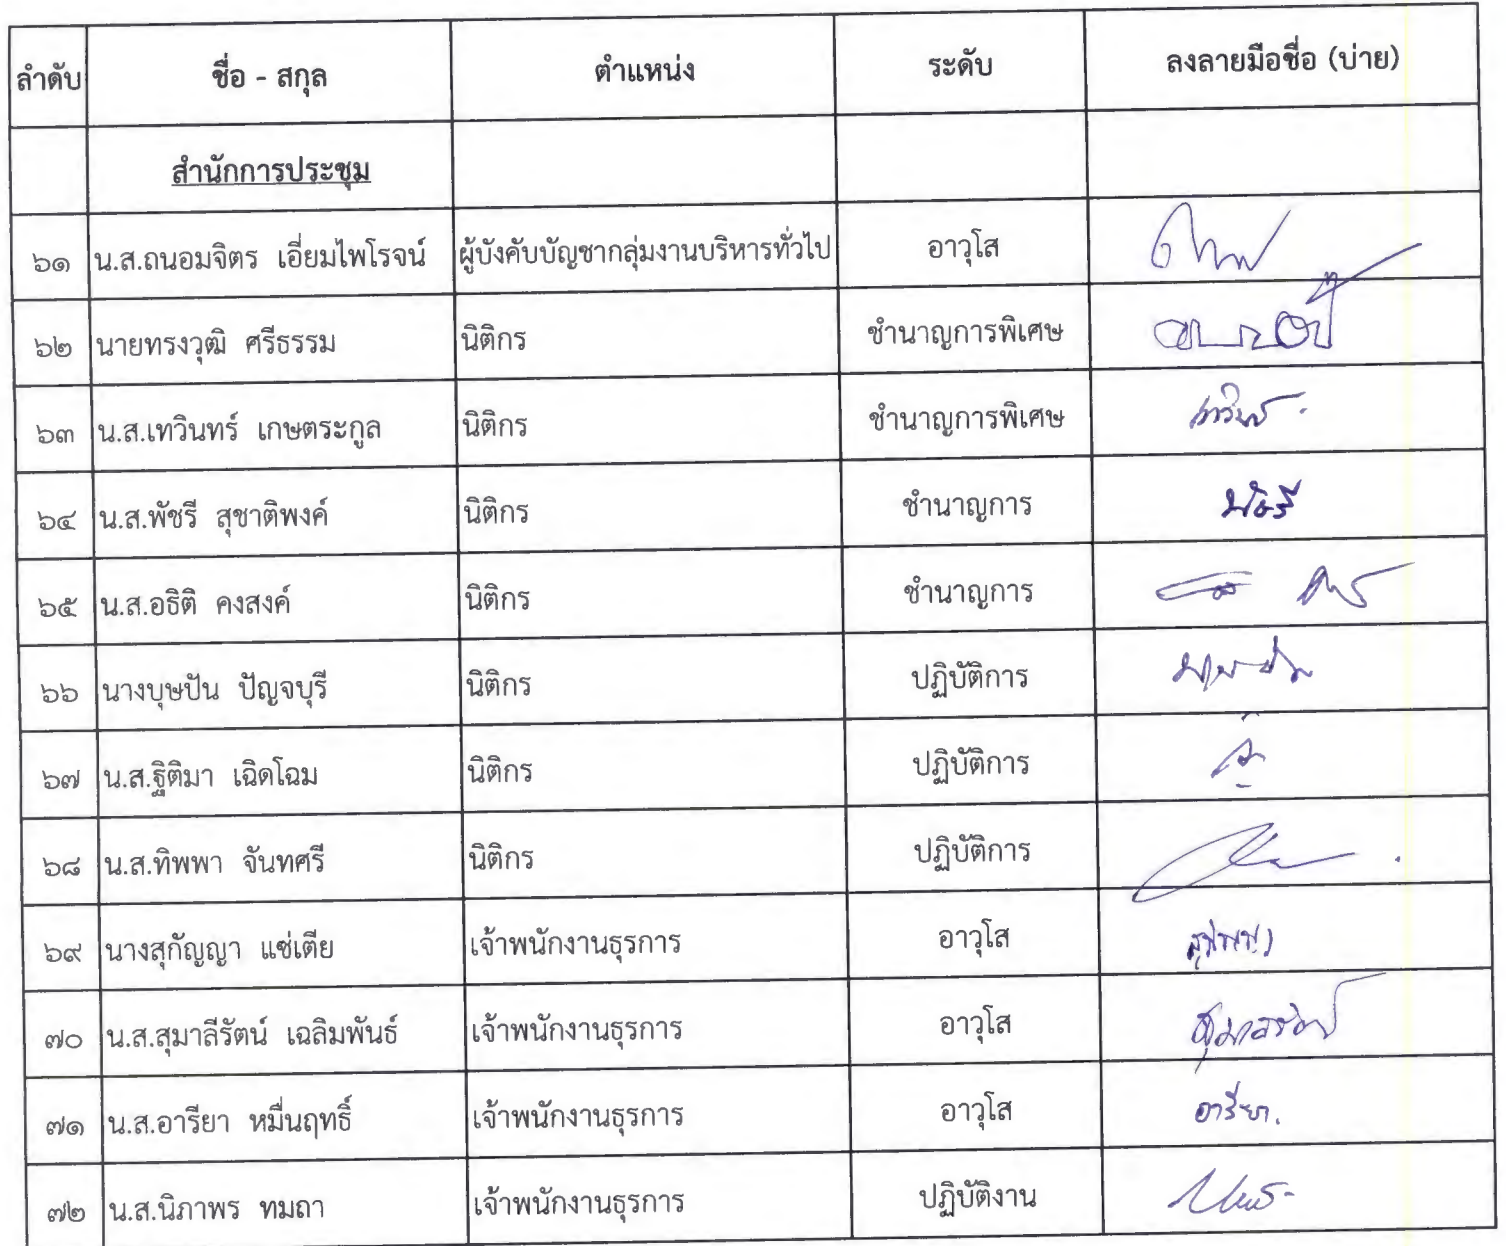 ลำดับ ชื่อ - สกุล ตำแหน่ง ระดับ ลงลายมือชื่อ (บ่าย)
สำนักการประชุม
๖๑ น.ส.ถนอมจิตร เอี่ยมไพโรจน์ ผู้บังคับบัญชากลุ่มงานบริหารทั่วไป อาวุโส
๖๒ นายทรงวุฒิ ศรีธรรม นิติกร ชำนาญการพิเศษ
๖๓ น.ส.เทวินทร์ เกษตระกูล นิติกร ชำนาญการพิเศษ เทวินทร์
๖๔ น.ส.พัชรี สุชาติพงค์ นิติกร ชำนาญการ พัชรี
๖๕ น.ส.อธิติ คงสงค์ นิติกร ชำนาญการ
๖๖ นางบุษปัน ปัญจบุรี นิติกร ปฏิบัติการ
๖๗ น.ส.ฐิติมา เฉิดโฉม นิติกร ปฏิบัติการ
๖๘ น.ส.ทิพพา จันทศรี นิติกร ปฏิบัติการ
๖๙ นางสุกัญญา แซ่เตีย เจ้าพนักงานธุรการ อาวุโส
๗๐ น.ส.สุมาลีรัตน์ เฉลิมพันธ์ เจ้าพนักงานธุรการ อาวุโส สุมาลีรัตน์
๗๑ น.ส.อารียา หมื่นฤทธิ์ เจ้าพนักงานธุรการ อาวุโส อารียา.
๗๒ น.ส.นิภาพร ทมถา เจ้าพนักงานธุรการ ปฏิบัติงาน